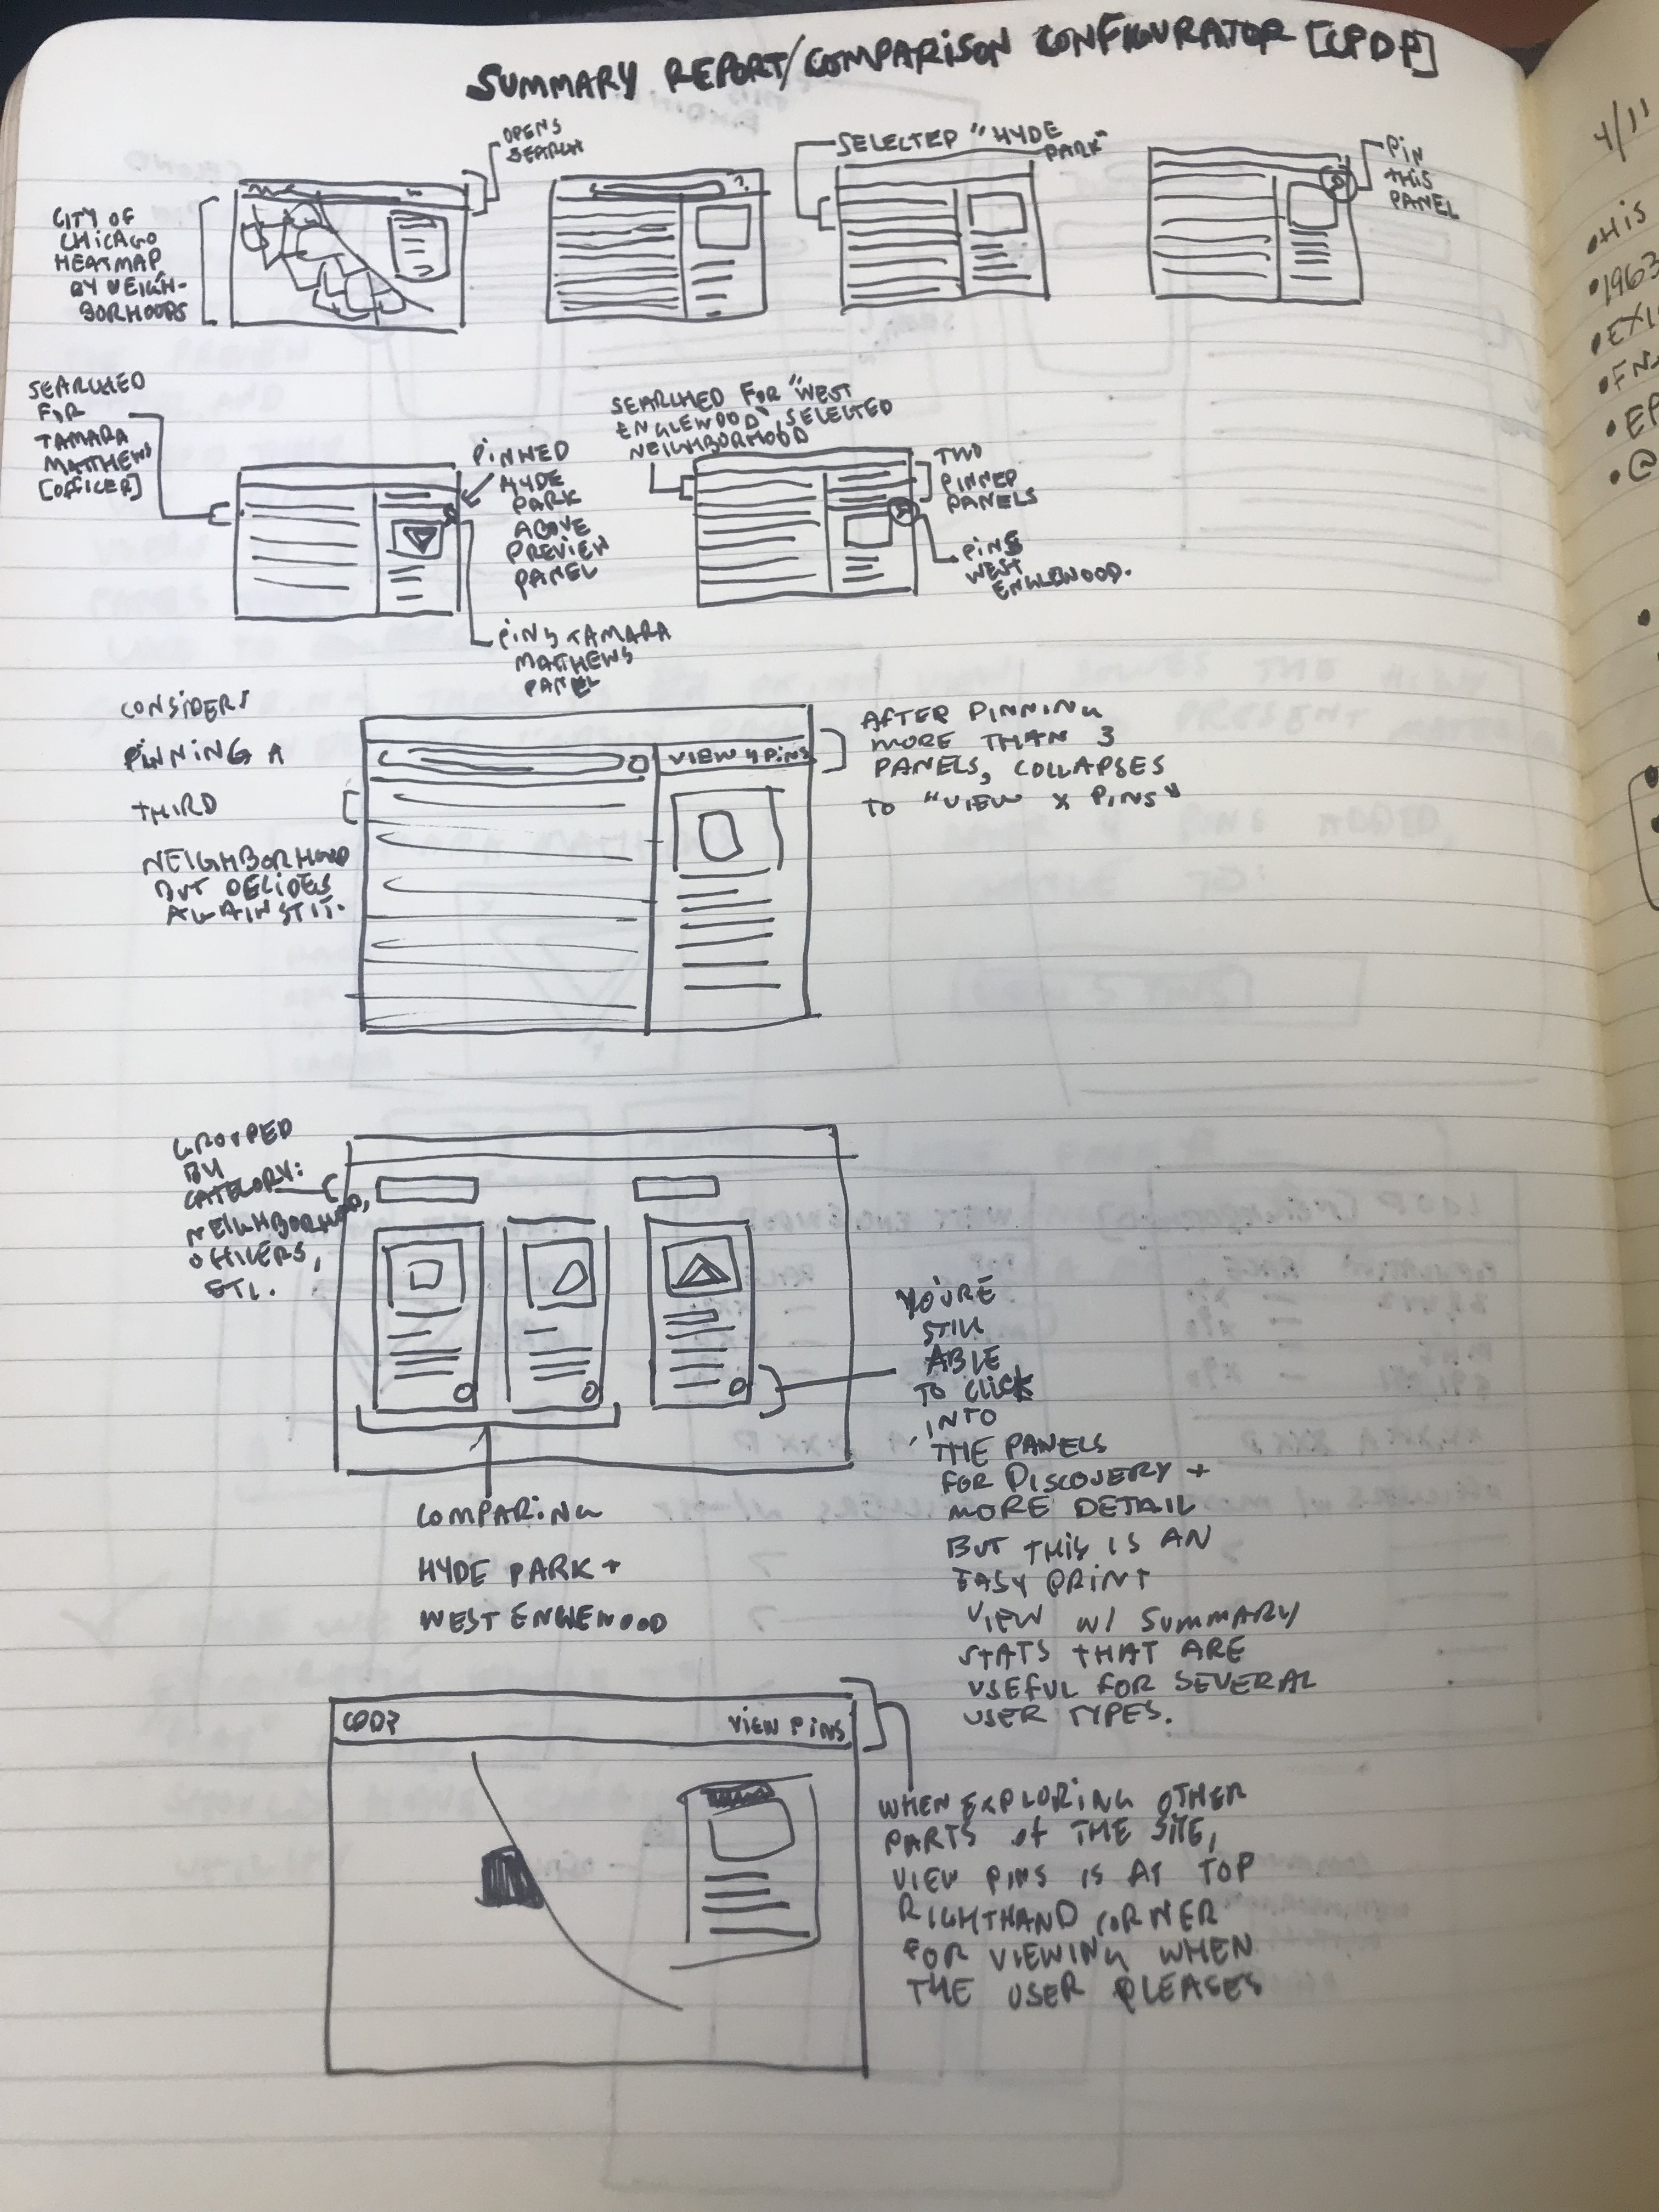 SUMMARY REPORT/COMPARISON CONFIGURATOR [CPDP]
OPENS
SEARCH
CITY OF
CHICAGO
HEATMAP
BY NEIGH-
BORHOODS
SELECTED "HYDE
PARK"
PIN
THIS
PANEL
SEARCHED
FOR
TAMARA
MATTHEWS
[OFFICER]
PINNED
HYDE
PARK
ABOVE
PREVIEW
PANEL
PINS TAMARA
MATHEWS
PANEL
SEARCHED FOR "WEST
ENGLEWOOD", SELECTED
NEIGHBORHOOD
TWO
PINNED
PANELS
PINS
WEST
ENGLEWOOD.
CONSIDERS
PINNING A
THIRD
NEIGHBORHOOD
BUT DECIDES
AGAINST IT.
VIEW 4 PINS
AFTER PINNING
MORE THAN 3
PANELS, COLLAPSES
TO "VIEW X PINS"
GROUPED
BY
CATEGORY:
NEIGHBORHOOD,
OFFICERS,
ETC.
COMPARING
HYDE PARK +
WEST ENGLEWOOD
YOU'RE
STILL
ABLE
TO CLICK
INTO
THE PANELS
FOR DISCOVERY +
MORE DETAIL
BUT THIS IS AN
EASY PRINT
VIEW W/ SUMMARY
STATS THAT ARE
USEFUL FOR SEVERAL
USER TYPES.
CPDP
VIEW PINS
WHEN EXPLORING OTHER
PARTS of THE SITE,
VIEW PINS IS AT TOP
RIGHTHAND CORNER
FOR VIEWING WHEN
THE USER PLEASES
4/11
• HIS
• 1963
• @